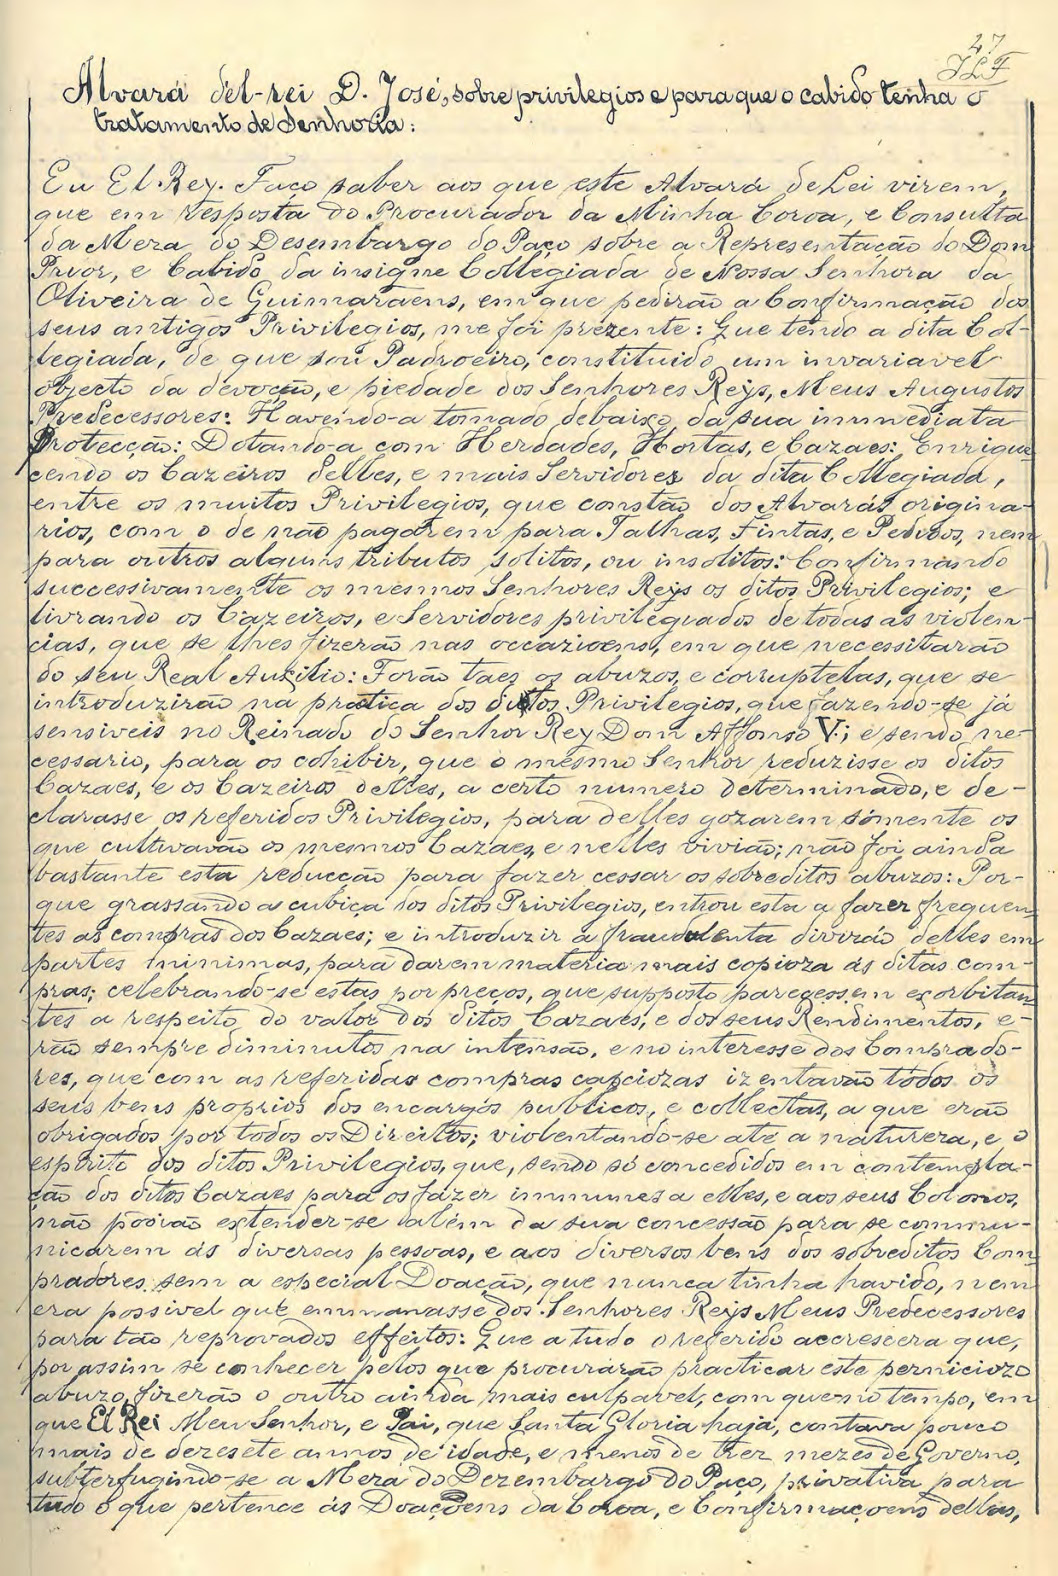 27
JLF
Alvará del-rei D. José, sobre privilegios e para que o cabido tenha o
tratamento de Senhoria:
Eu El-Rey. Faço saber aos que este Alvará de Lei virem,
que em resposta do Procurador da Minha Coroa, e Consulta
da Meza do Desembargo do Paço sobre a Representação do Dom
Prior, e Cabido da insigne Collegiada de Nossa Senhora da
Oliveira de Guimaraens, em que pedirão a Confirmação dos
seus antigos Privilegios, me foi prezente: Que tendo a dita Col-
legiada, de que sou Padroeiro, constituido um invariavel
objecto da devoção, e piedade dos Senhores Reys, Meus Augustos
Predecessores: Havendo-a tomado debaixo da sua immediata
Protecção: Dotando-a com Herdades, Hortas, e Cazaes: Enrique
cendo os Cazeiros delles, e mais Servidores da dita Collegiada,
entre os muitos Privilegios, que constão dos Alvarás origina-
rios, com o de não pagarem para Talhas, Fintas, e Pedidos, nem
para outros alguns tributos solitos, ou insolitos: Confirmando
successivamente os mesmos Senhores Reys os ditos Privilegios; e
livrando os Cazeiros, e Servidores privilegiados de todas as violen-
cias, que se lhes fizerão nas occazioens, em que necessitarão
do seu Real Auxilio: Forão taes os abuzos, e corruptelas, que se
introduzirão na pratica dos dittos Privilegios, que fazendo-se já
sensiveis no Reinado do Senhor Rey Dom Affonso V; e sendo ne-
cessario, para os cohibir, que o mesmo Senhor reduzisse os ditos
Cazaes, e os Cazeiros delles, a certo numero determinado, e de-
clarasse os referidos Privilegios, para delles gozarem sómente os
que cultivavão os mesmos Cazaes, e nelles vivião; não foi ainda
bastante esta reducção para fazer cessar os sobreditos abuzos: Por-
que grassando a cubiça dos ditos Privilegios, entrou esta a fazer frequen
tes as compras dos Cazaes; e introduzir a fraudulenta divizão delles em
partes minimas, para darem materia mais copioza ás ditas com-
pras; celebrando-se estas por preços, que supposto parecessem exorbitan
tes a respeito do valor dos ditos Cazaes, e dos seus Rendimentos, e-
rão sempre diminutos na intensão, e no interesse dos Comprado-
res, que com as referidas compras capciozas izentavão todos os
seus bens proprios dos encargos publicos, e collectas, a que erão
obrigados por todos os Direitos; violentando-se até a natureza, e o
espirito dos ditos Privilegios, que, sendo só concedidos em contempla-
ção dos ditos Cazaes para os fazer immunes a elles, e aos seus Colonos,
não podião extender-se além da sua concessão para se commu-
nicarem ás diversas pessoas, e aos diversos bens dos sobreditos Com
pradores sem a especial Doação, que nunca tinha havido, nem
era possivel que emmanasse dos Senhores Reys Meus Predecessores
para tão reprovados effeitos: Que a tudo o referido accrescera que,
por assim se conhecer pelos que procurárão practicar este perniciozo
abuzo, fizerão o outro ainda mais culpavel, com que no tempo, em
que El Rei Meu Senhor, e Pai, que Santa Gloria haja, contava pouco
mais de dezesete annos de idade, e menos de trez mezes de Governo,
subterfugindo-se a Meza do Dezembargo do Paço, privativa para
tudo o que pertence ás Doaçoens da Coroa, e Confirmaçoens dellas,